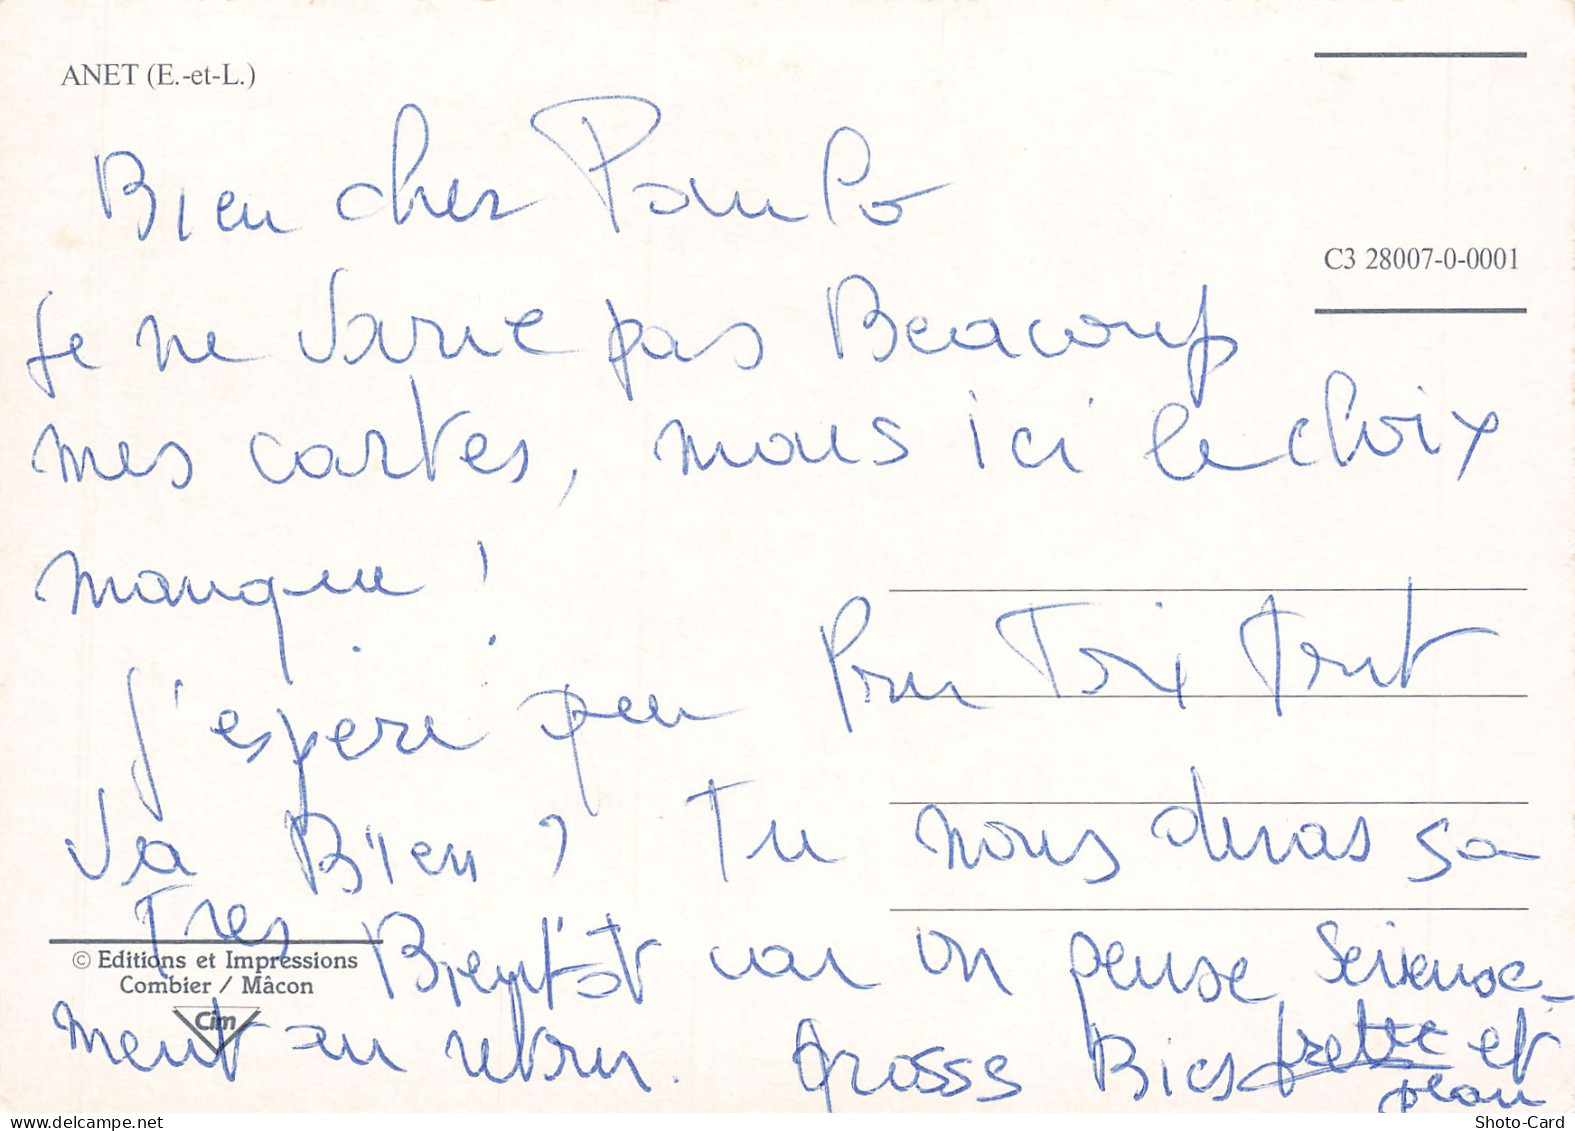 ANET (E.-et-L.)
Bien cher Paulo
C3 28007-0-0001
je ne varie pas Beacoup
mes cartes, mais ici le choix
manque !
j'espere que Pour Toi tout
va Bien ? Tu nous diras sa
Tres Bientôt car on pense serieuse-
© Editions et Impressions
Combier / Mâcon
Cim
ment au retour. grosses Bises et
Jean
Shoto-Card
www.delcampe.net